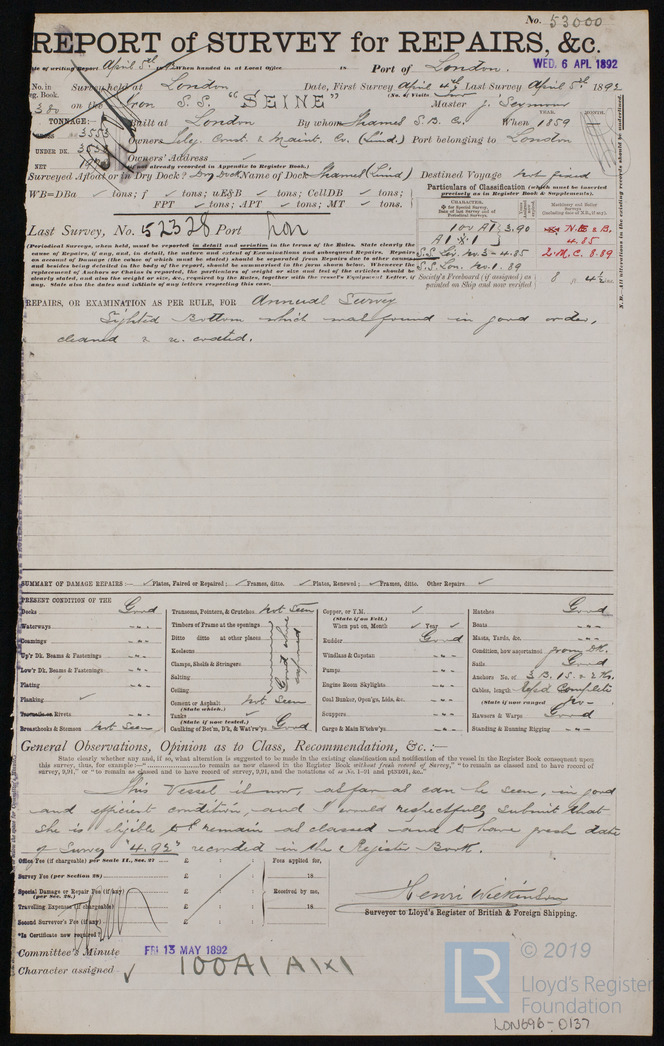 No. 53000
REPORT of SURVEY for REPAIRS, &c.
Date of writing Report April 5th When handed in at Local Office 18 Port of London.
WED. 6 APL 1892
No. in Reg. Book. Survey held at London Date, First Survey April 4th Last Survey April 5th 1892
on the Iron S.S. "SEINE" (No. of Visits) Master J. Seymour
TONNAGE: Built at London By whom Thames S. B. Co. When 1859
YEAR. MONTH.
GROSS 3553
Owners Teleg. Const. & Maint. Co. (Limd.) Port belonging to London
UNDER DK.
Owners' Address
NET
(if not already recorded in Appendix to Register Book.)
Surveyed Afloat or in Dry Dock? Dry Dock Name of Dock Thames (Limd) Destined Voyage Not fixed
WB=DBa tons; f tons; uE&B tons; CellDB tons;
FPT tons; APT tons; MT tons.
Particulars of Classification (which must be inserted precisely as in Register Book & Supplements).
Last Survey, No. 52328 Port Lon
CHARACTER.
100 A1 3.90
A1
S.S. Lon. No. 1. 89
N.E. & B.
4.85
L.M.C. 8.89
Society's Freeboard (if assigned) as painted on Ship and now verified
(Periodical Surveys, when held, must be reported in detail and seriatim in the terms of the Rules. State clearly the cause of Repairs, if any, and, in detail, the nature and extent of Examinations and subsequent Repairs. Repairs on account of Damage
any. State also the dates and initials of any letters respecting this case.
N.B. All alterations in the existing records should be underlined.
REPAIRS, OR EXAMINATION AS PER RULE, FOR Annual Survey
Sighted Bottom which was found in good order,
cleaned & re. coated.
SUMMARY OF DAMAGE REPAIRS:— Plates, Faired or Repaired; Frames, ditto. Plates, Renewed; Frames, ditto. Other Repairs
PRESENT CONDITION OF THE
Decks Good
Waterways
Coamings
Up'r Dk. Beams & Fastenings
Low'r Dk. Beams & Fastenings
Plating
Planking
Treenails or Rivets
Breasthooks & Stemson Not Seen
Transoms, Pointers, & Crutches Not Seen
Timbers of Frame at the openings
Ditto ditto at other places
Keelsons
Clamps, Shelfs & Stringers
Salting
Ceiling
Good where exposed
Cement or Asphalt Not Seen
(State which.)
Tanks
(State if now tested.)
Caulking of Bot'm, D'k, & Wat'rw'ys Good
Copper, or Y.M.
(State if on Felt.)
When put on, Month Year
Rudder Good
Windlass & Capstan
Pumps
Engine Room Skylights
Coal Bunker, Open'gs, Lids, &c.
Scuppers
Cargo & Main H'tchw'ys
Hatches Good
Boats
Masts, Yards, &c.
Condition, how ascertained from Dk.
Sails Good
Anchors No. of 3 B. 1 S. & 2 K.
Cables, length Rep'd Complete
(State if now ranged) No
Hawsers & Warps Good
Standing & Running Rigging
General Observations, Opinion as to Class, Recommendation, &c. :—
State clearly whether any, and if so, what alteration is suggested to be made in the existing classification and notification of the vessel in the Register Book consequent upon this survey, thus, for example:—"to remain as now classed in the Register Book without fresh record of Survey," "to remain as classed and to have record of survey, 9,91," or "to remain as classed and to have record of survey, 9,91, and the notations of ss No. 1-91 and ptND91, &c."
This Vessel is now, as far as can be seen, in good
and efficient condition, and I would respectfully submit that
she is eligible to remain as classed and to have fresh date
of Survey "4.92" recorded in the Register Book.
Office Fee (if chargeable) per Scale II., Sec. 27 £ : :
Fees applied for,
Survey Fee (per Section 28) £ : :
18
Special Damage or Repair Fee (if any) £ : :
(per Sec. 28.)
Received by me,
Travelling Expenses (if chargeable) £ : :
18
Second Surveyor's Fee (if any) £ : :
*Is Certificate now required?
Henri Wilkinson
Surveyor to Lloyd's Register of British & Foreign Shipping.
Committee's Minute FRI 13 MAY 1892
Character assigned 100A1 A1x1
LR © 2019
Lloyd's Register
Foundation
LON696-0137